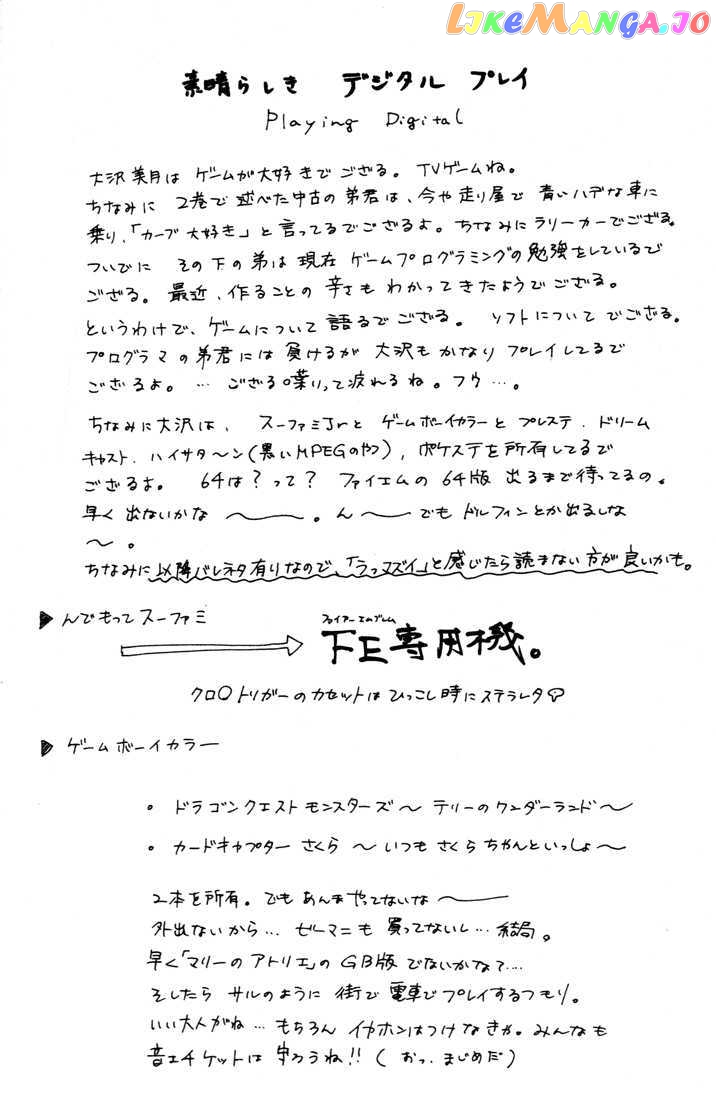 LIKEMANGA.IO
素晴らしき デジタル プレイ
Playing Digital
大沢美月は ゲームが大好きでござる。TVゲームね。
ちなみに 2巻で述べた中古の弟君は、今や走り屋で 青いハデな車に
乗り、「カーブ大好き」と言ってるでござるよ。ちなみにラリーカーでござる。
ついでに その下の弟は現在 ゲームプログラミングの勉強をしているで
ござる。最近、作ることの辛さも わかってきたようでござる。
というわけで、ゲームについて 語るでござる。 ソフトについてでござる。
プログラマの弟君には 負けるが 大沢もかなり プレイしてるで
ござるよ。… ござる喋りって疲れるね。フウ…。
ちなみに大沢は、 スーファミJrと ゲームボーイカラーと プレステ、ドリーム
キャスト、ハイサタ〜ン(黒いMPEGのやつ)、ポケステを所有してるで
ござるよ。 64は?って? ファイエムの 64版 出るまで待ってるの。
早く 出ないかな 〜。ん〜 でも ドルフィンとか出るしな
〜。
ちなみに以降バレネタ有りなので、「うっマズイ」と感じたら読まない方が良いかも。
▶ んでもってスーファミ
ファイアーエムブレム
FE専用機。
クロ〇トリガーのカセットは ひっこし時に ステラレタ♡
▶ ゲームボーイカラー
• ドラゴンクエスト モンスターズ 〜 テリーのワンダーランド〜
• カードキャプター さくら 〜 いつも さくら ちゃんといっしょ〜
2本を所有。でも あんまやってないな 〜
外出ないから… ゼーマニも 買ってないし… 結局。
早く「マリーの アトリエ」の GB版 でないかなて…
そしたら サルのように 街で 電車でプレイするつもり。
いい大人がね… もちろん イヤホンはつけなきゃ。みんなも
音エチケットは 守ろうね!! (おっ、まじめだ)